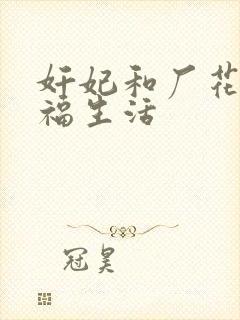 奸妃和厂花
福生活
冠昊